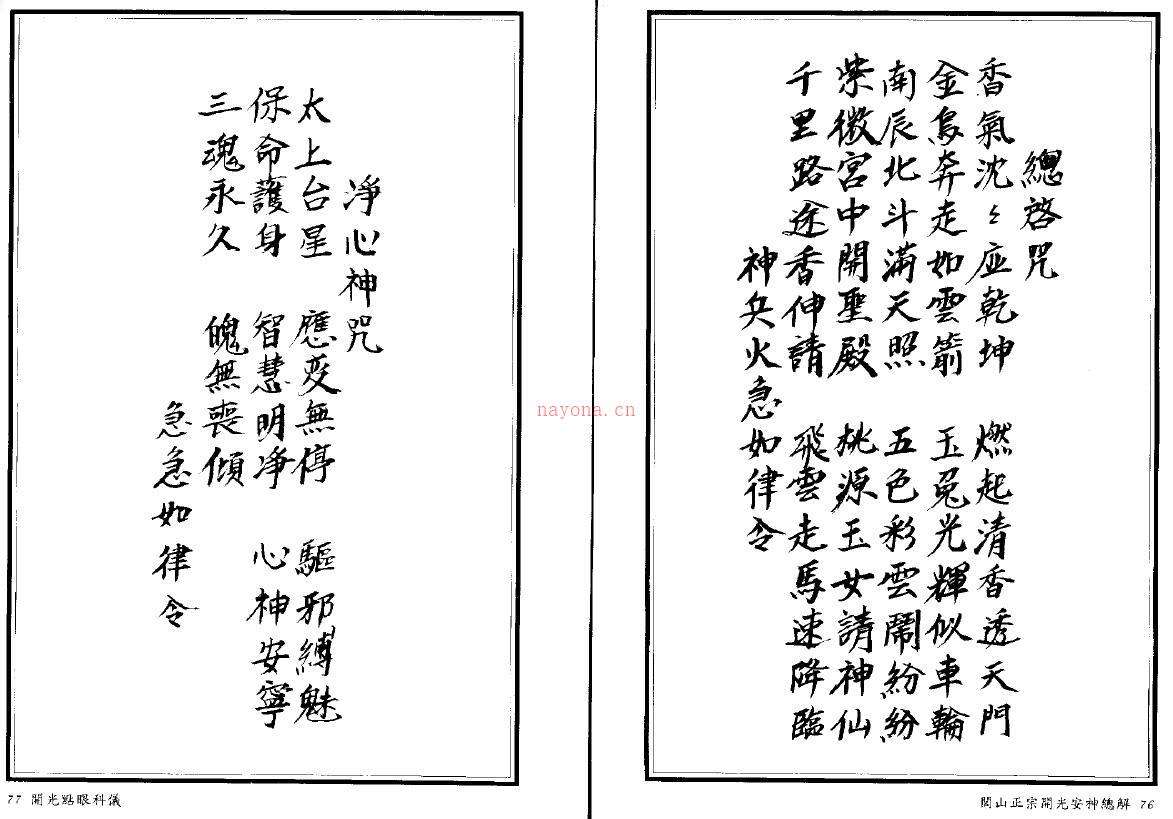 總啓咒
香氣沈〻应乾坤　燃起清香透天門
金烏奔走如雲箭　玉兔光輝似車輪
南辰北斗滿天照　五色彩雲鬧紛紛
紫微宮中開聖殿　桃源玉女請神仙
千里路途香伸請　飛雲走馬速降臨
神兵火急如律令
閭山正宗開光安神總解 76
淨心神咒
太上台星　應变無停　驅邪縛魅
保命護身　智慧明净　心神安寧
三魂永久　魄無喪傾
急急如律令
77 開光點眼科儀
nayona.cn